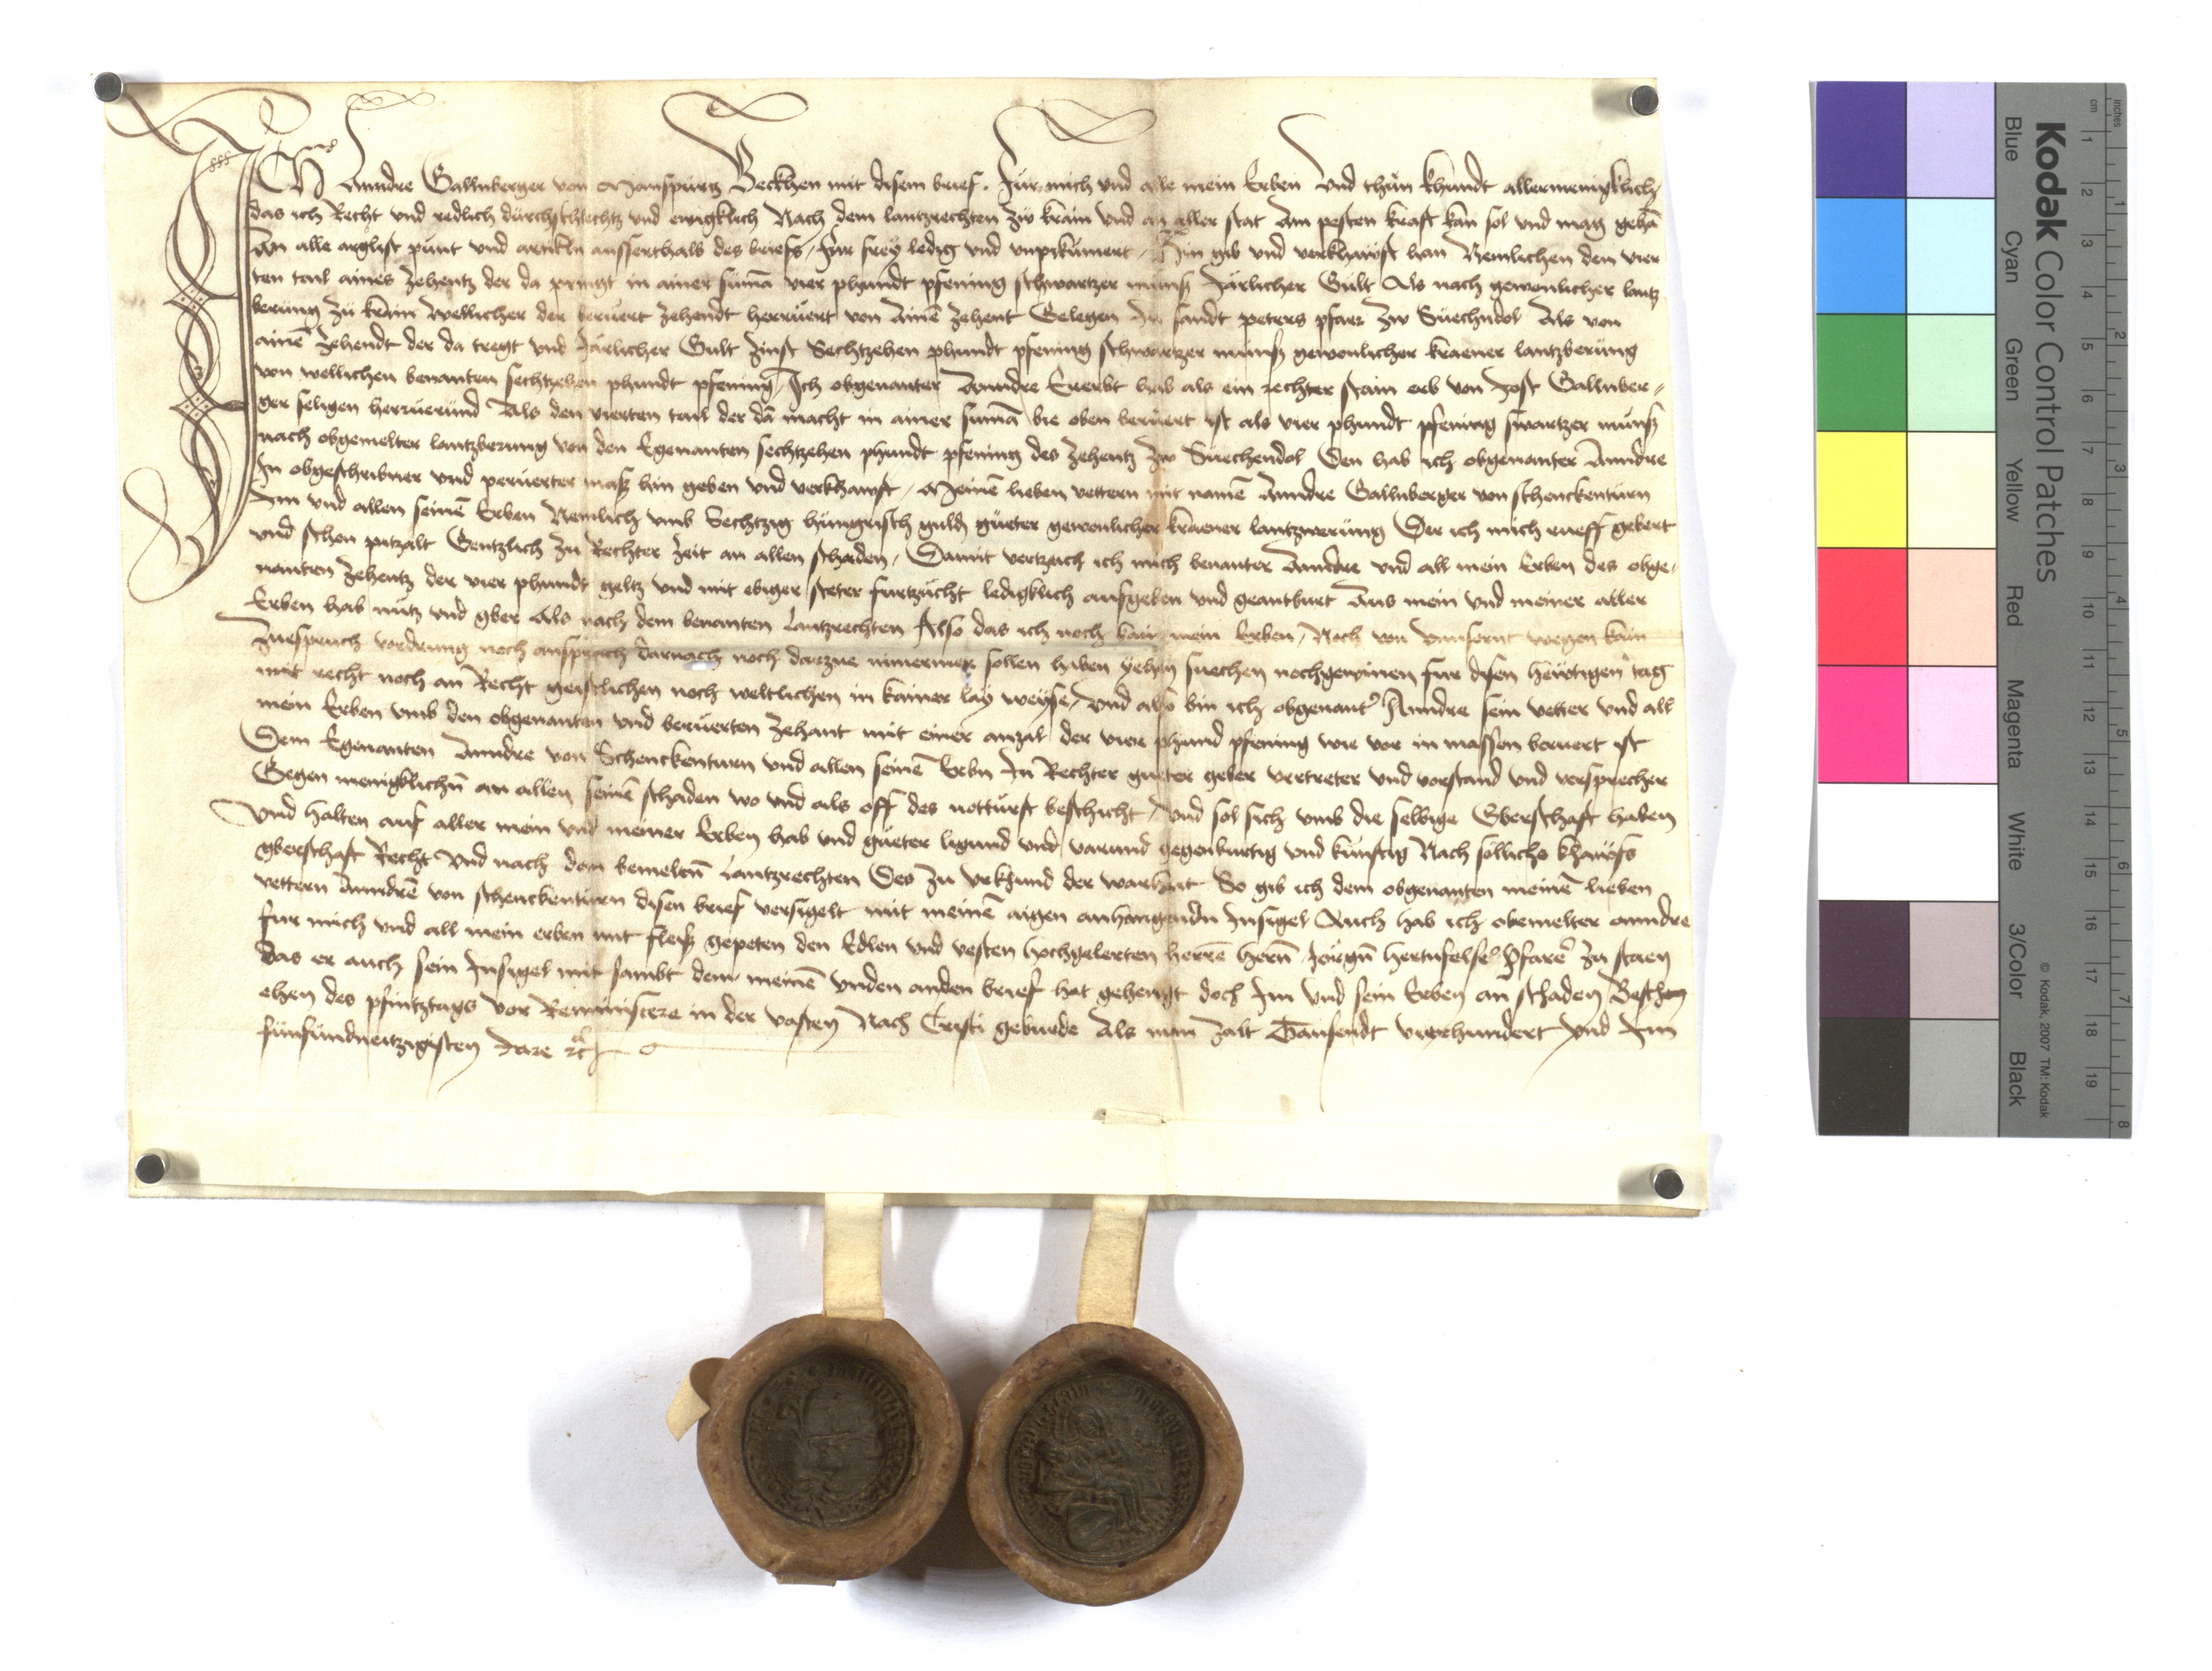 Ich Anndre Gallnberger von Manspurg Beckhen mit disem brief. Fur mich und alle mein Erben Und thun khundt allermenigklich
das ich Recht und redlich durchschlechtz und ewigklich Nach dem lantzrechten zw krain und an aller stat Am pesten kraft kan sol und mag gehā
An alle arglist punt und artickln ausserthalb des briefs / fur frey ledig und unpekumert / Hin gib und verkhauft han Nemlichen den vier
ten tail aines zehentz der da pringt in ainer sumā vier phundt pfening schwartzer munss Jarlicher Gult Als nach gewonlicher lantz
berung zu krain wellicher der beruert zehendt herruert von Ainē zehent Gelegen In sandt peters pfarr zw Suechndol Als von
ainē zehendt der da tregt und Jarlicher Gult zinst Sechtzehen phundt pfening schwartzer munss gewonlicher kraener lantzberung
von wellichen benanten sechtzehen phundt pfening / Ich obgenanter Anndre Ererbt hab als ein rechter stam erb von Jost Gallnber=
ger seligen herruerund Als den vierten tail der dā macht in ainer sumā bie oben beruert ist als vier phundt pfening swartzer munss
nach obgemelter lantzberung von den Egenanten sechtzehen phundt pfening des zehentz zw Suechendol Den hab ich obgenanter Anndre
In obgeschribner und peruerter mass hin geben und verkhauft / Meinē lieben vettern mit namē Anndre Gallnberger von schenckenturn
Im und allen seinē Erben Nemlich umb Sechtzig hungrisch guldn gueter gewonlicher kraener lantzwerung Der ich mich rueff gebert
und schon petzalt Gentzlich zu Rechter zeit an allen schaden / Damit vertzeich ich mich benanter Anndre und all mein Erben des obge=
nanten zehentz der vier phundt geltz und mit ebiger steter furtzucht ledigklich aufgeben und geantburt Aus mein und meiner aller
Erben hab nutz und gber Als nach dem benanten Lantzrechten Also das ich noch kain mein Erben / Noch von unnsernt wegen kain
Zuespruch vordrung noch anspruch darnach noch dartzue nimermer sollen haben yehen suechen nochgewinen fur disen heutigen tag
mit recht noch an Recht geistlichen noch weltlichen in kainer lay weyse / und also bin ich obgenant' Anndre sein vetter und all
mein Erben umb den obgenanten und beruerten zehant mit einer anzal der vier phund pfening wie vor in massen beruert ist
Dem Egenanten Anndre von Schenckenturn und allen seinē Erbn In Rechter gueter geber vertreter und vorstand und versprecher
Gegen menigklichn an allen seinē schaden wo und als off des notturft beschicht / und sol sich umb die selbige Gberschaft haben
Und halten auf aller mein und meiner Erben hab und gueter ligund und varund gegenburtig und kunftig Nach sollichs khaufs
gberschaft Recht und nach dem bemeltn Lantzrechten Des zu urkhund der warhait So gib ich dem obgenanten meinē lieben
vettern Anndrē von schenckenturn disen brief versigelt mit meinē aigen anhangendn Insigel Auch hab ich obemelter anndre
fur mich und all mein erben mit fleiss gepeten den Edlen und vesten hochgelerten herrē hern Jorgn Pfarrē zu stain
Das er auch sein Insigel mit sambt dem meinē unden anden brief hat gehengt doch Im und sein Erben an schaden Besche
ehen des pfintztags vor Reminiscere in der vasten Nach Cristi geburde Als man zalt Tausendt vierhundert und Im
funfundneitzigisten Jare rc
Kodak Color Control Patches
Blue Cyan Green Yellow Red Magenta White 3/Color Black
© Kodak, 2007 TM: Kodak
cm 1 2 3 4 5 6 7 8 9 10 11 12 13 14 15 16 17 18 19
inches 1 2 3 4 5 6 7 8